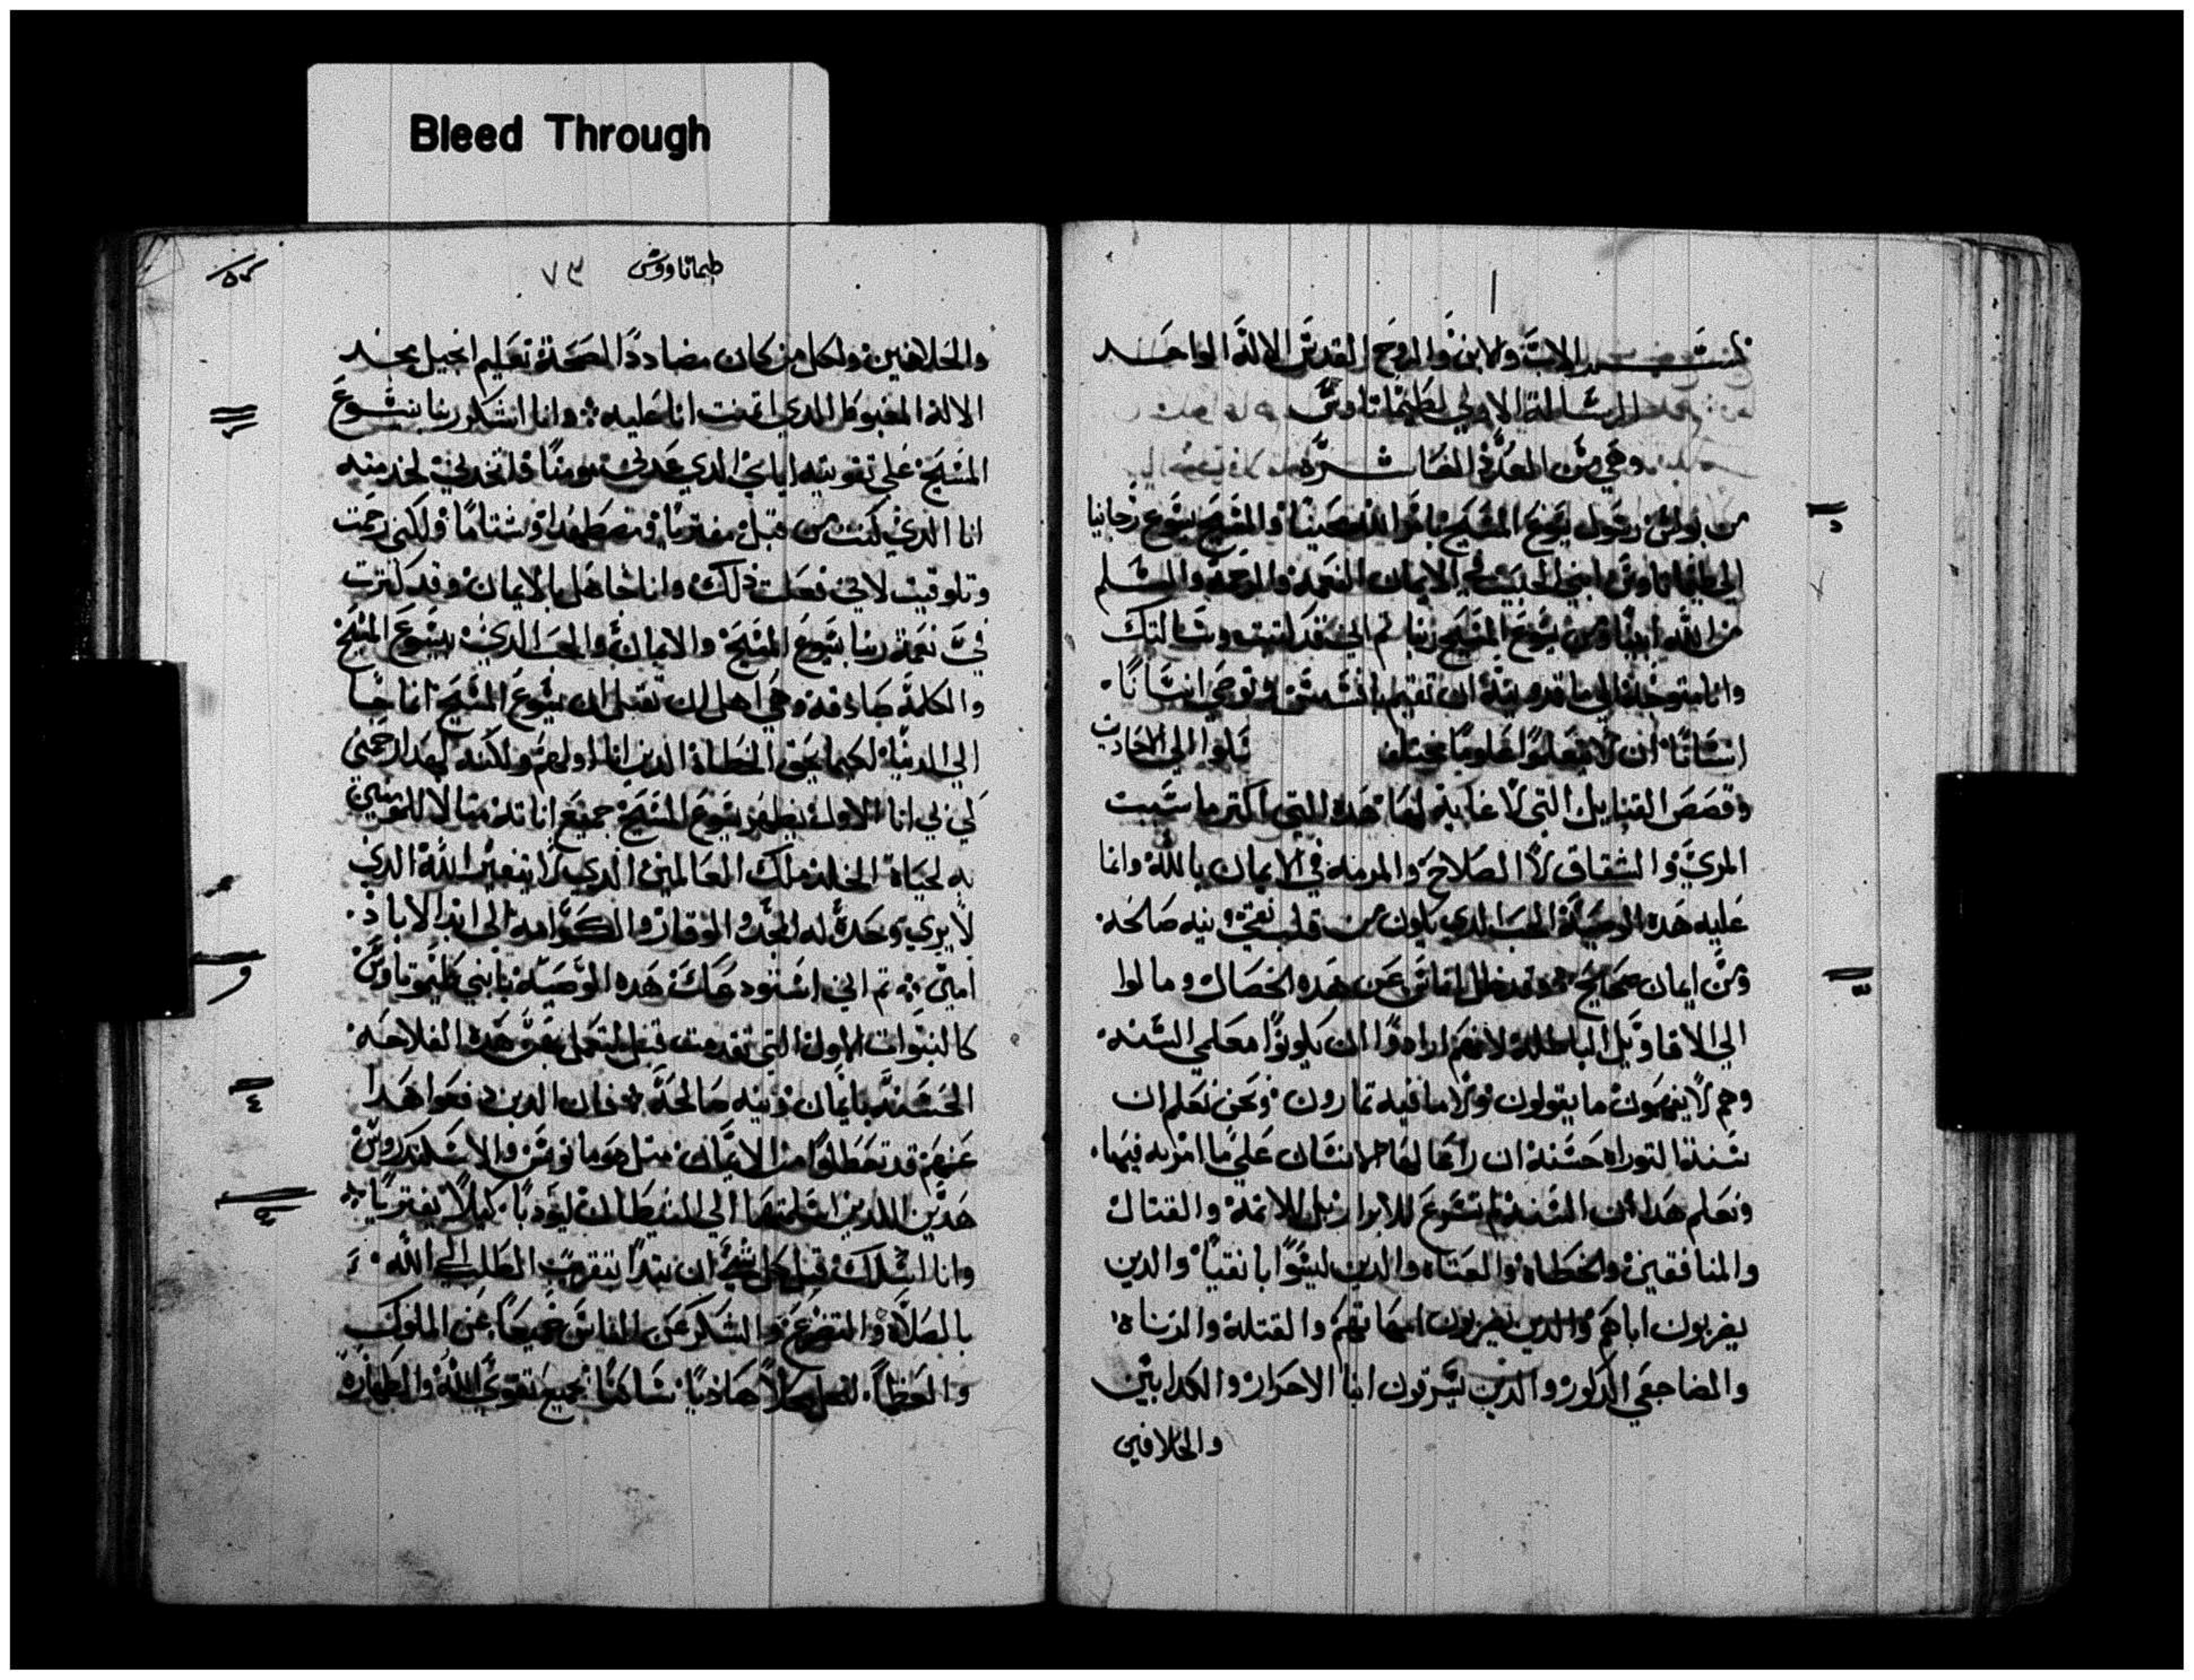 Bleed Through
بسم الاب والابن والروح القدس الاله الواحد
الرساله الاولي لطيماتاوس
وهي من العدد العاشره
من بولس رسول يسوع المسيح بامر الله محيينا والمسيح يسوع رجانا
الي طيماتاوس ابني الحبيب في الايمان النعمه والرحمه والسلم
من الله ابينا ومن يسوع المسيح ربنا ثم اني قد كنت وسالتك
وانا متوجه الي ماقدونيه ان تقيم بافسس وتوصي انسانًا
انسانًا ان لا يتعلموا علومًا مختلفه تلوا الي الاحاديث
وقصص القبايل التي لا غايه لها هده التي اكثر ما سببت
المري والشقاق لا الصلاح والمرمه في الايمان بالله وانما
عليه هده الوصيه الحب الدي يكون من قلب نقي ونيه صالحه
ومن ايمان صحيح وقد ضل اناس عن هده الخصال ومالوا
الي الاقاويل الباطله لانهم ارادوا ان يكونوا معلمي السنه
وهم لا يفهمون ما يقولون ولا ما فيه تمارون ونحن نعلم ان
سنة التوراه حسنه ان راعا لها الانسان علي ما امر به فيها
ونعلم هدا ان السنه لم تشرع للابرار بل للاتمه والقتال
والمنافقين والخطاه والعتاه والدين ليسوا بانقيا والدين
يضربون اباهم والدين يضربون امهاتهم والقتله والزناه
والمضاجعي الدكور والدين يسرقون ابنا الاحرار والكدابين
والحلافين
طيماتاووس ٧٣
والحلافين ولكل من كان مضاددًا لصحة تعليم انجيل مجد
الاله المغبوط الدي اتمنت انا عليه وانا اشكر ربنا يسوع
المسيح علي تقويته اياي الدي عدني مومنًا فاتخدني لخدمته
انا الدي كنت من قبل مفتريا ومضطهدا وشتامًا ولكني رحمت
وتلوقيت لاني فعلت دلك وانا جاهل بالايمان وقد كثرت
في نعمة ربنا يسوع المسيح والايمان والحب الدي بيسوع المسيح
والكلمة صادقه وهي اهل ان تقبل ان يسوع المسيح انما جا
الي الدنيا لكيما يحيي الخطاه الدين انا اولهم ولكنه لهدا رحمني
لكي في انا الاول يظهر يسوع المسيح جميع اناته مثالا للمومنين
به لحياة الخلد ملك العالمين الدي لا يتغير الله الدي
لا يري وحده له المجد والوقار والكرامه الي ابد الاباد
امين ثم اني استودعك هده الوصيه يا بني طيموتاوس
كالنبوات الاوله التي تقدمت قبل لتعمل بهن هده الفلاحه
الحسنه بايمان ونيه صالحه فان الدين دفعوا هدا
عنهم قد تعطلوا من الايمان مثل هومانوس والاسكندروس
هدين اللدين اسلمتهما الي الشيطان ليودبا كيلا يفتريا
وانا اسلك قبل كل شي ان تبدا بتقريب الطلب الي الله
بالصلاه والتضرع والشكر عن الناس جميعا عن الملوك
والعظما لنعمل عملا هاديا ساكنا بجميع تقوي الله والطهاره